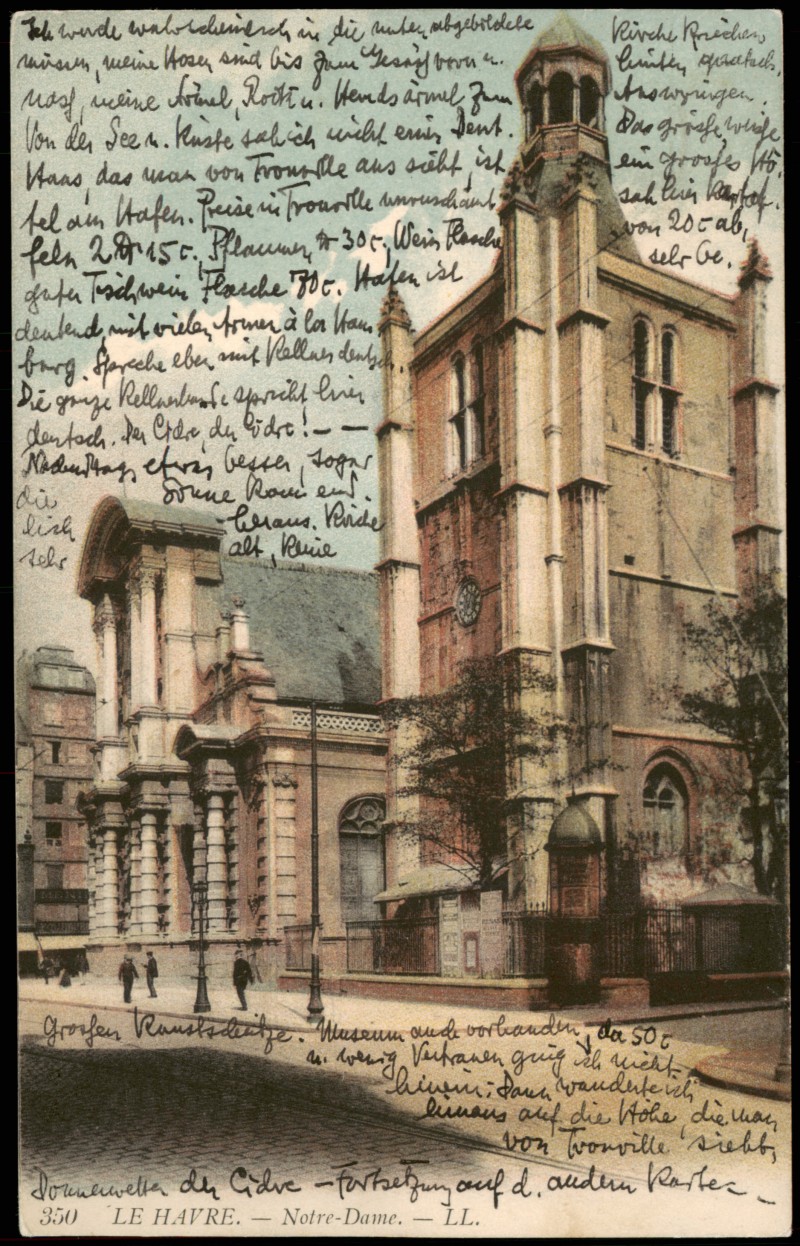 Ich werde wahrscheinlich in die unten abgebildete Kirche kriechen
müssen, meine Hosen sind bis zum Gesäß vorn u. hinten quatsch.
nass, meine Ärmel, Rock u. Hemdsärmel zum Auswringen.
Von der See u. Küste sah ich nicht einen Deut. Das große, weiße
Haus, das man von Trouville aus sieht, ist ein grosses Hô-
tel am Hafen. Preise in Trouville unverschämt sah hier Kartof-
feln 2 15 c., Pflaumen 30 c., Wein Flasche von 20 c ab,
guter Tischwein Flasche 70 c. Hafen ist sehr be-
deutend, mit vielen Armen à la Ham-
burg. Spreche eben mit Kellner deutsch.
Die ganze Kellnerbande spricht hier
deutsch. Der Cidre, der Cidre! — —
Nachmittags etwas besser, sogar
die Sonne kam end-
lich heraus. Kirche
sehr alt, keine
Grossen Kunstschätze. Museum auch vorhanden, da 50 c
u. wenig Vertrauen ging ich nicht
hinein; Dann wanderte ich
hinaus auf die Höhe, die man
von Trouville sieht,
Donnerwetter der Cidre — Fortsetzung auf d. andern Karte —
350 LE HAVRE. — Notre-Dame. — LL.